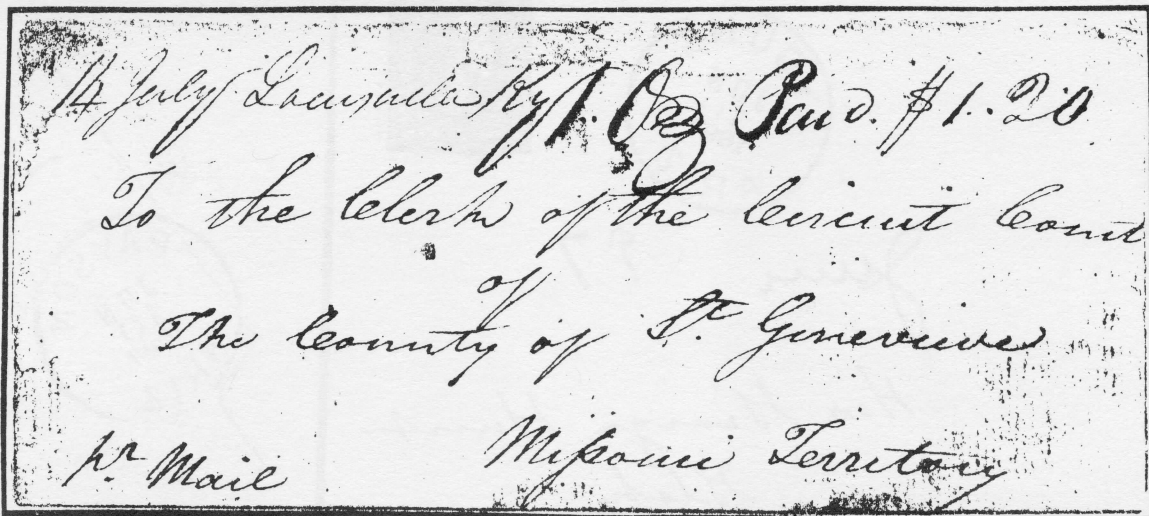 14 July Louisville Ky 1. Oz Paid. $1.20
To the Clerk of the Circuit Court
of
The County of St. Genevieve
pr. Mail Missouri Territory